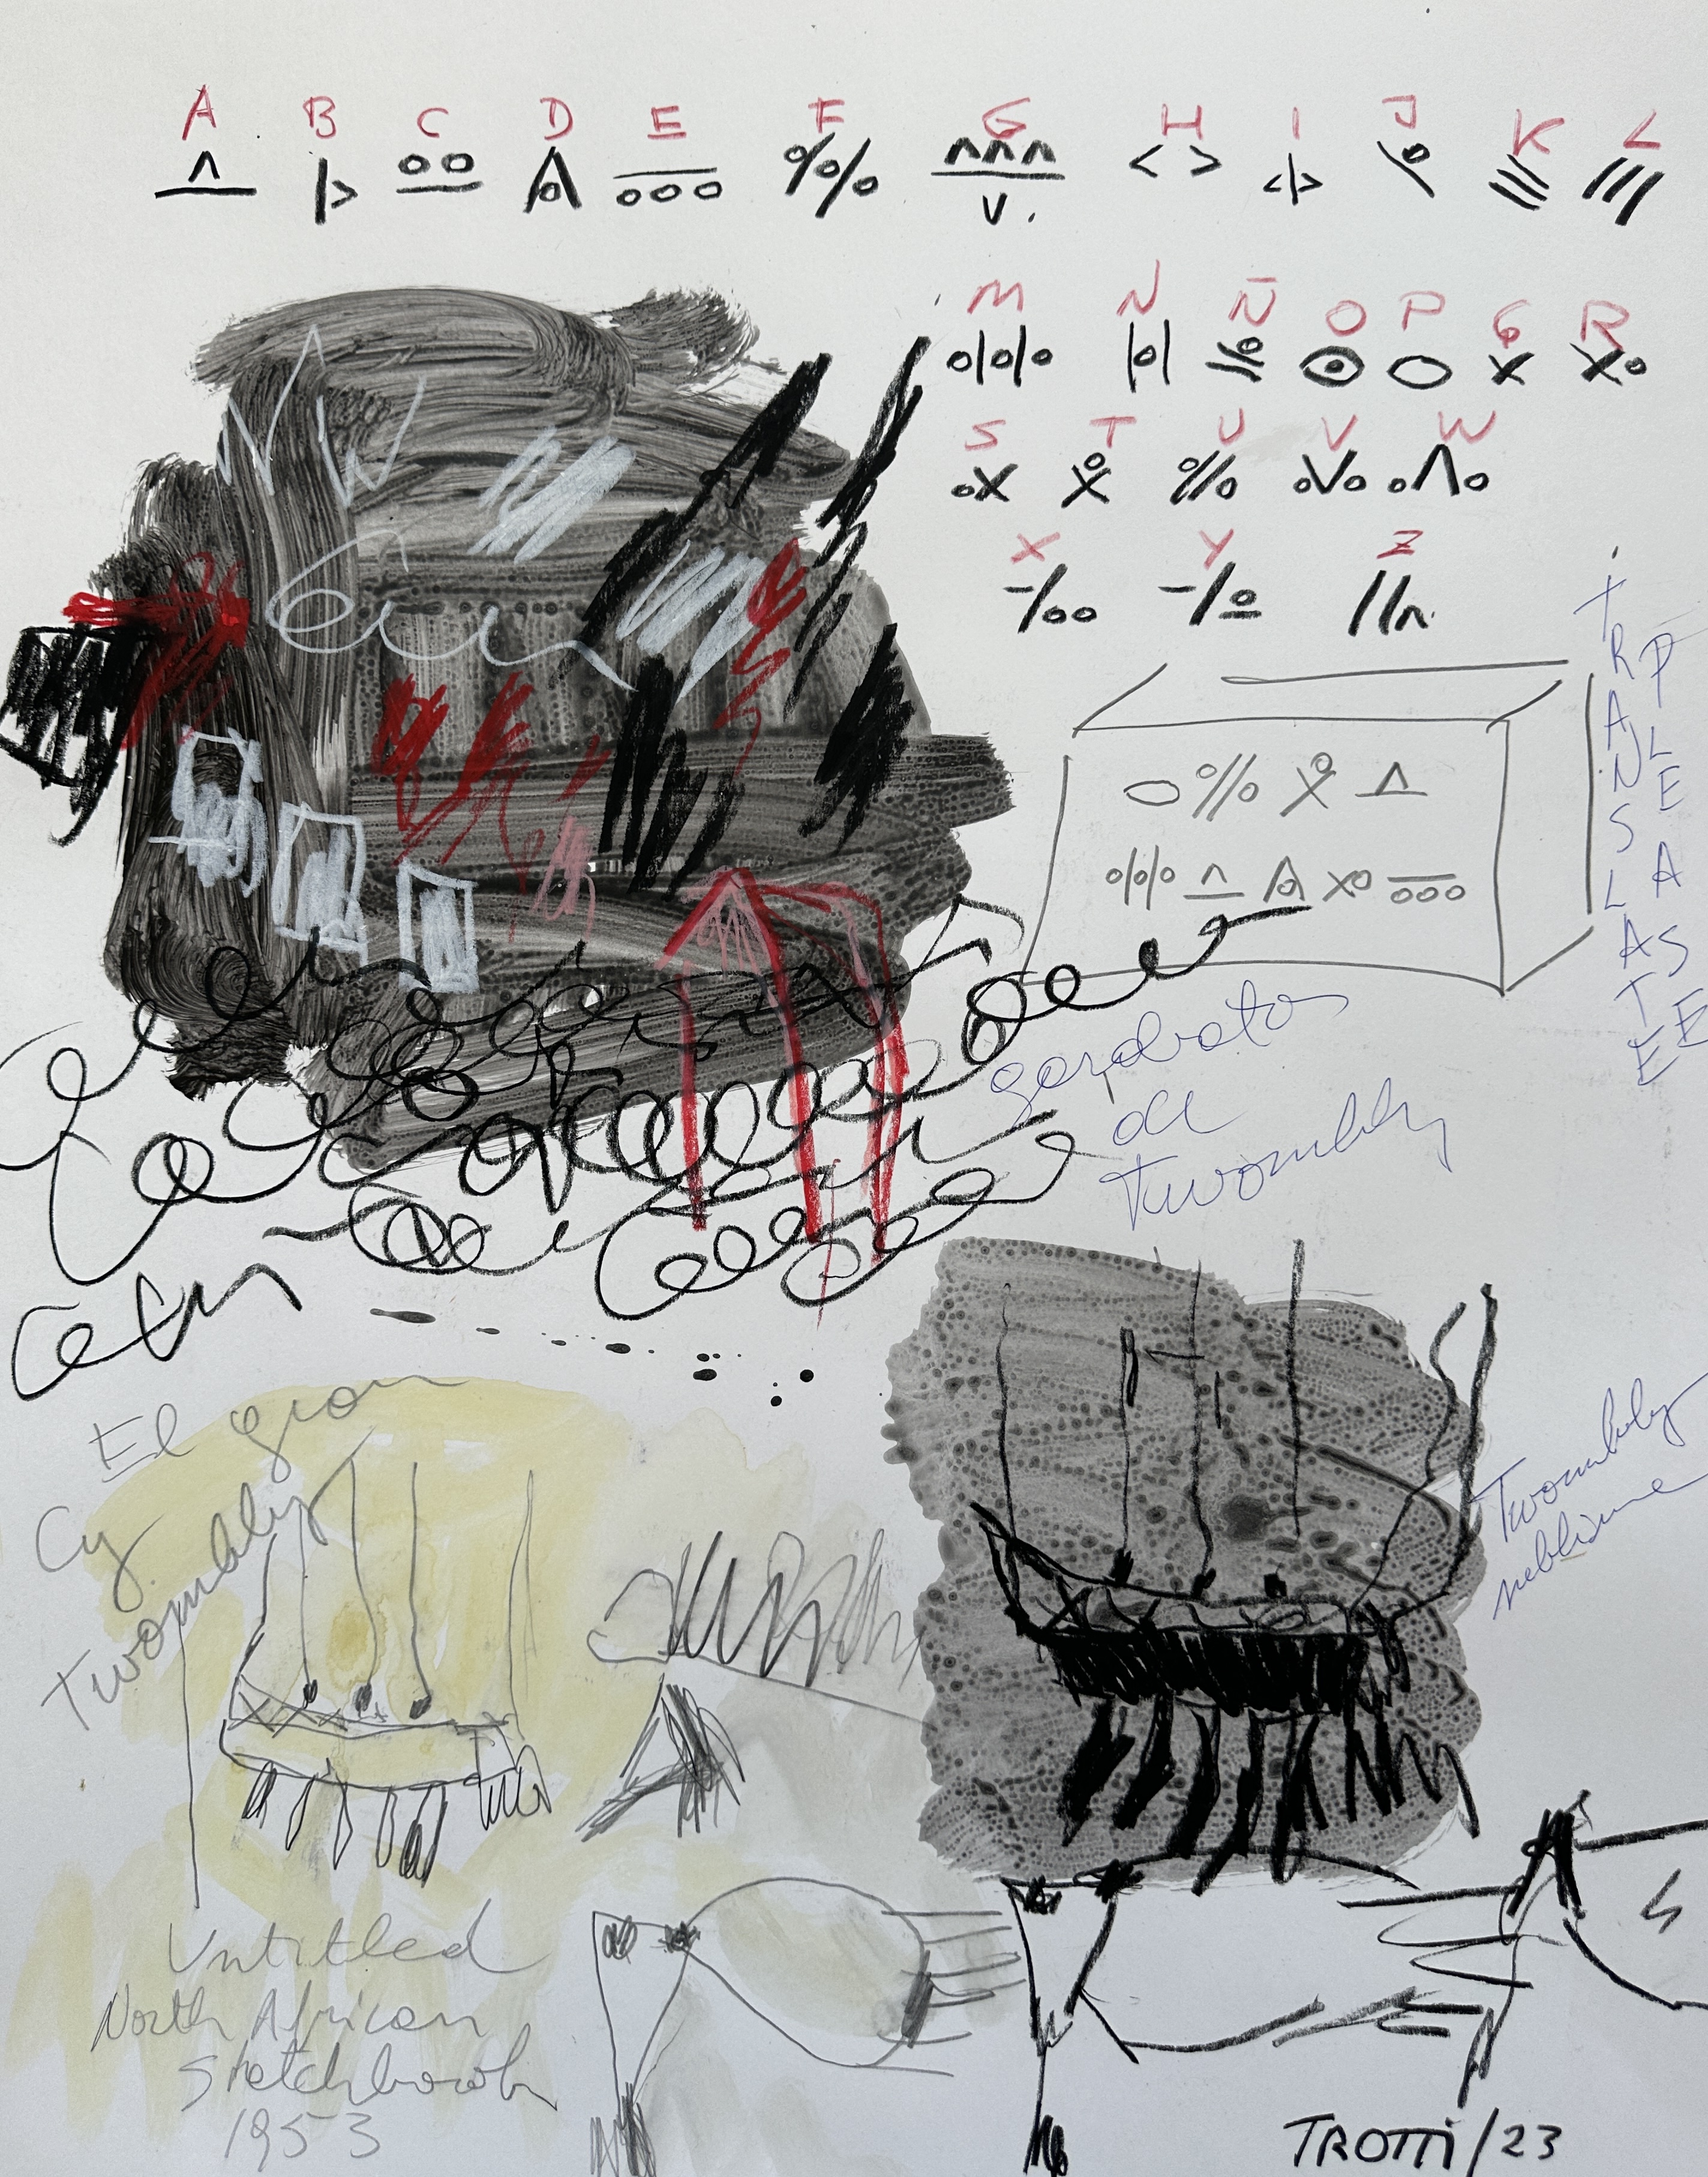 A B C D E F G H I J K L
M N Ñ O P G R
S T U V W
X Y Z
TRANSLATE
PLEASE
garabatos
de
Twombly
El gran
Cy
Twombly
Twombly
sublime
Untitled
North African
Sketchbook
1953
TROTTi/23